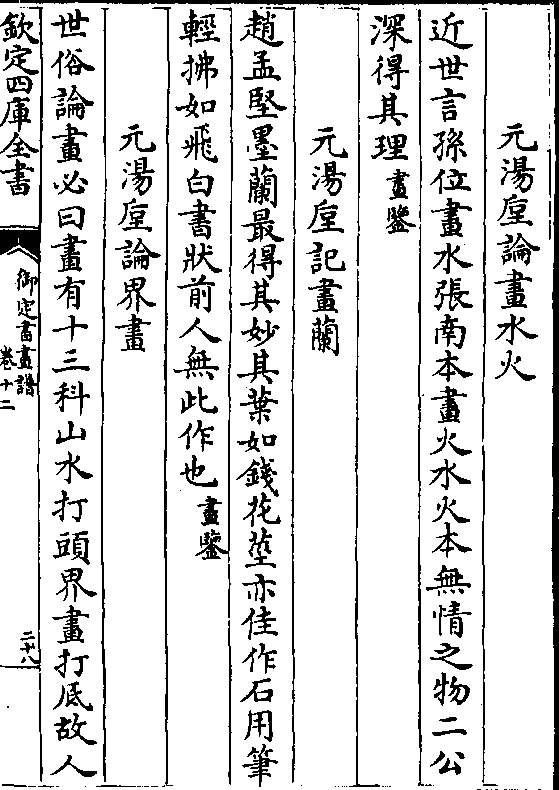 元湯垕論畫水火
近世言孫位畫水張南本畫火水火本無情之物二公
深得其理畫鑒
元湯垕記畫蘭
趙孟堅墨蘭最得其妙其葉如錢花莖亦佳作石用筆
輕拂如飛白書狀前人無此作也畫鑒
元湯垕論界畫
世俗論畫必曰畫有十三科山水打頭界畫打底故人
欽定四庫全書
御定書畫譜
卷十二
二十八